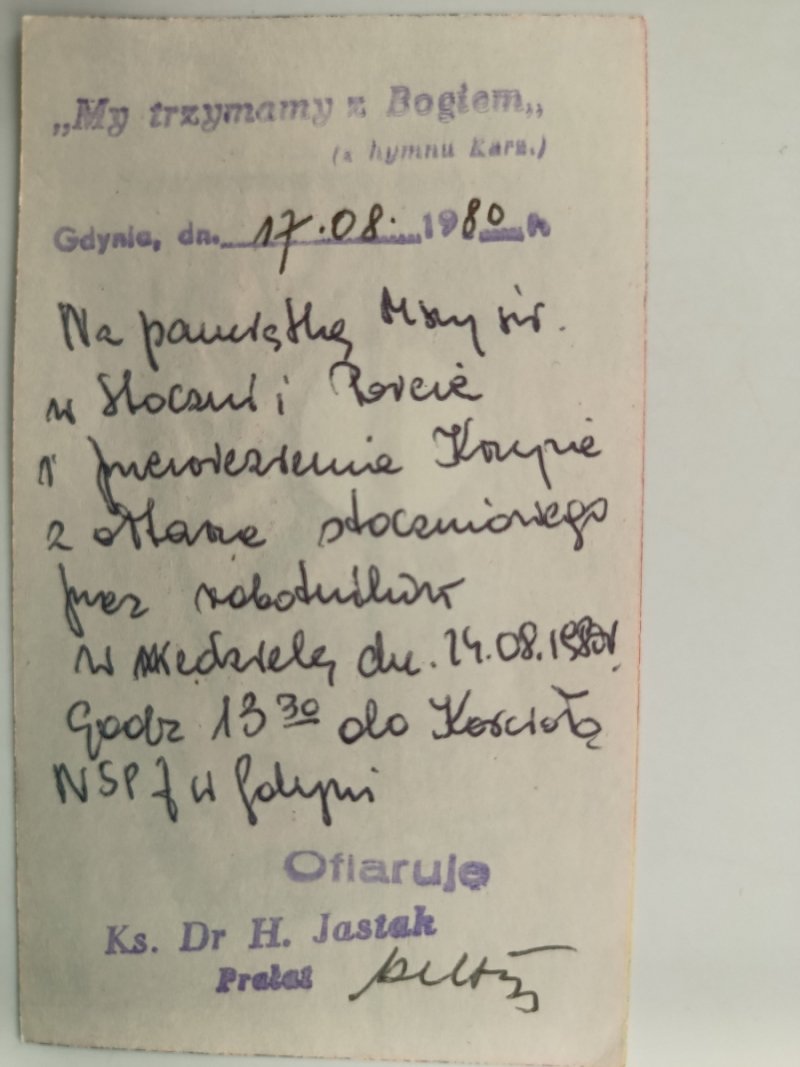 „My trzymamy z Bogiem„
(z hymnu Kasz.)
Gdynia, dn. 17.08. 1980 r.
Na pamiątkę Mszy św.
w Stoczni i Porcie
i przewiezienia Krzyża
z ołtarza stoczniowego
przez robotników
w niedzielę dn. 24.08.1980r.
Godz 13 30 do Kościoła
NSPJ w Gdyni
Ofiaruje
Ks. Dr H. Jastak
Prałat